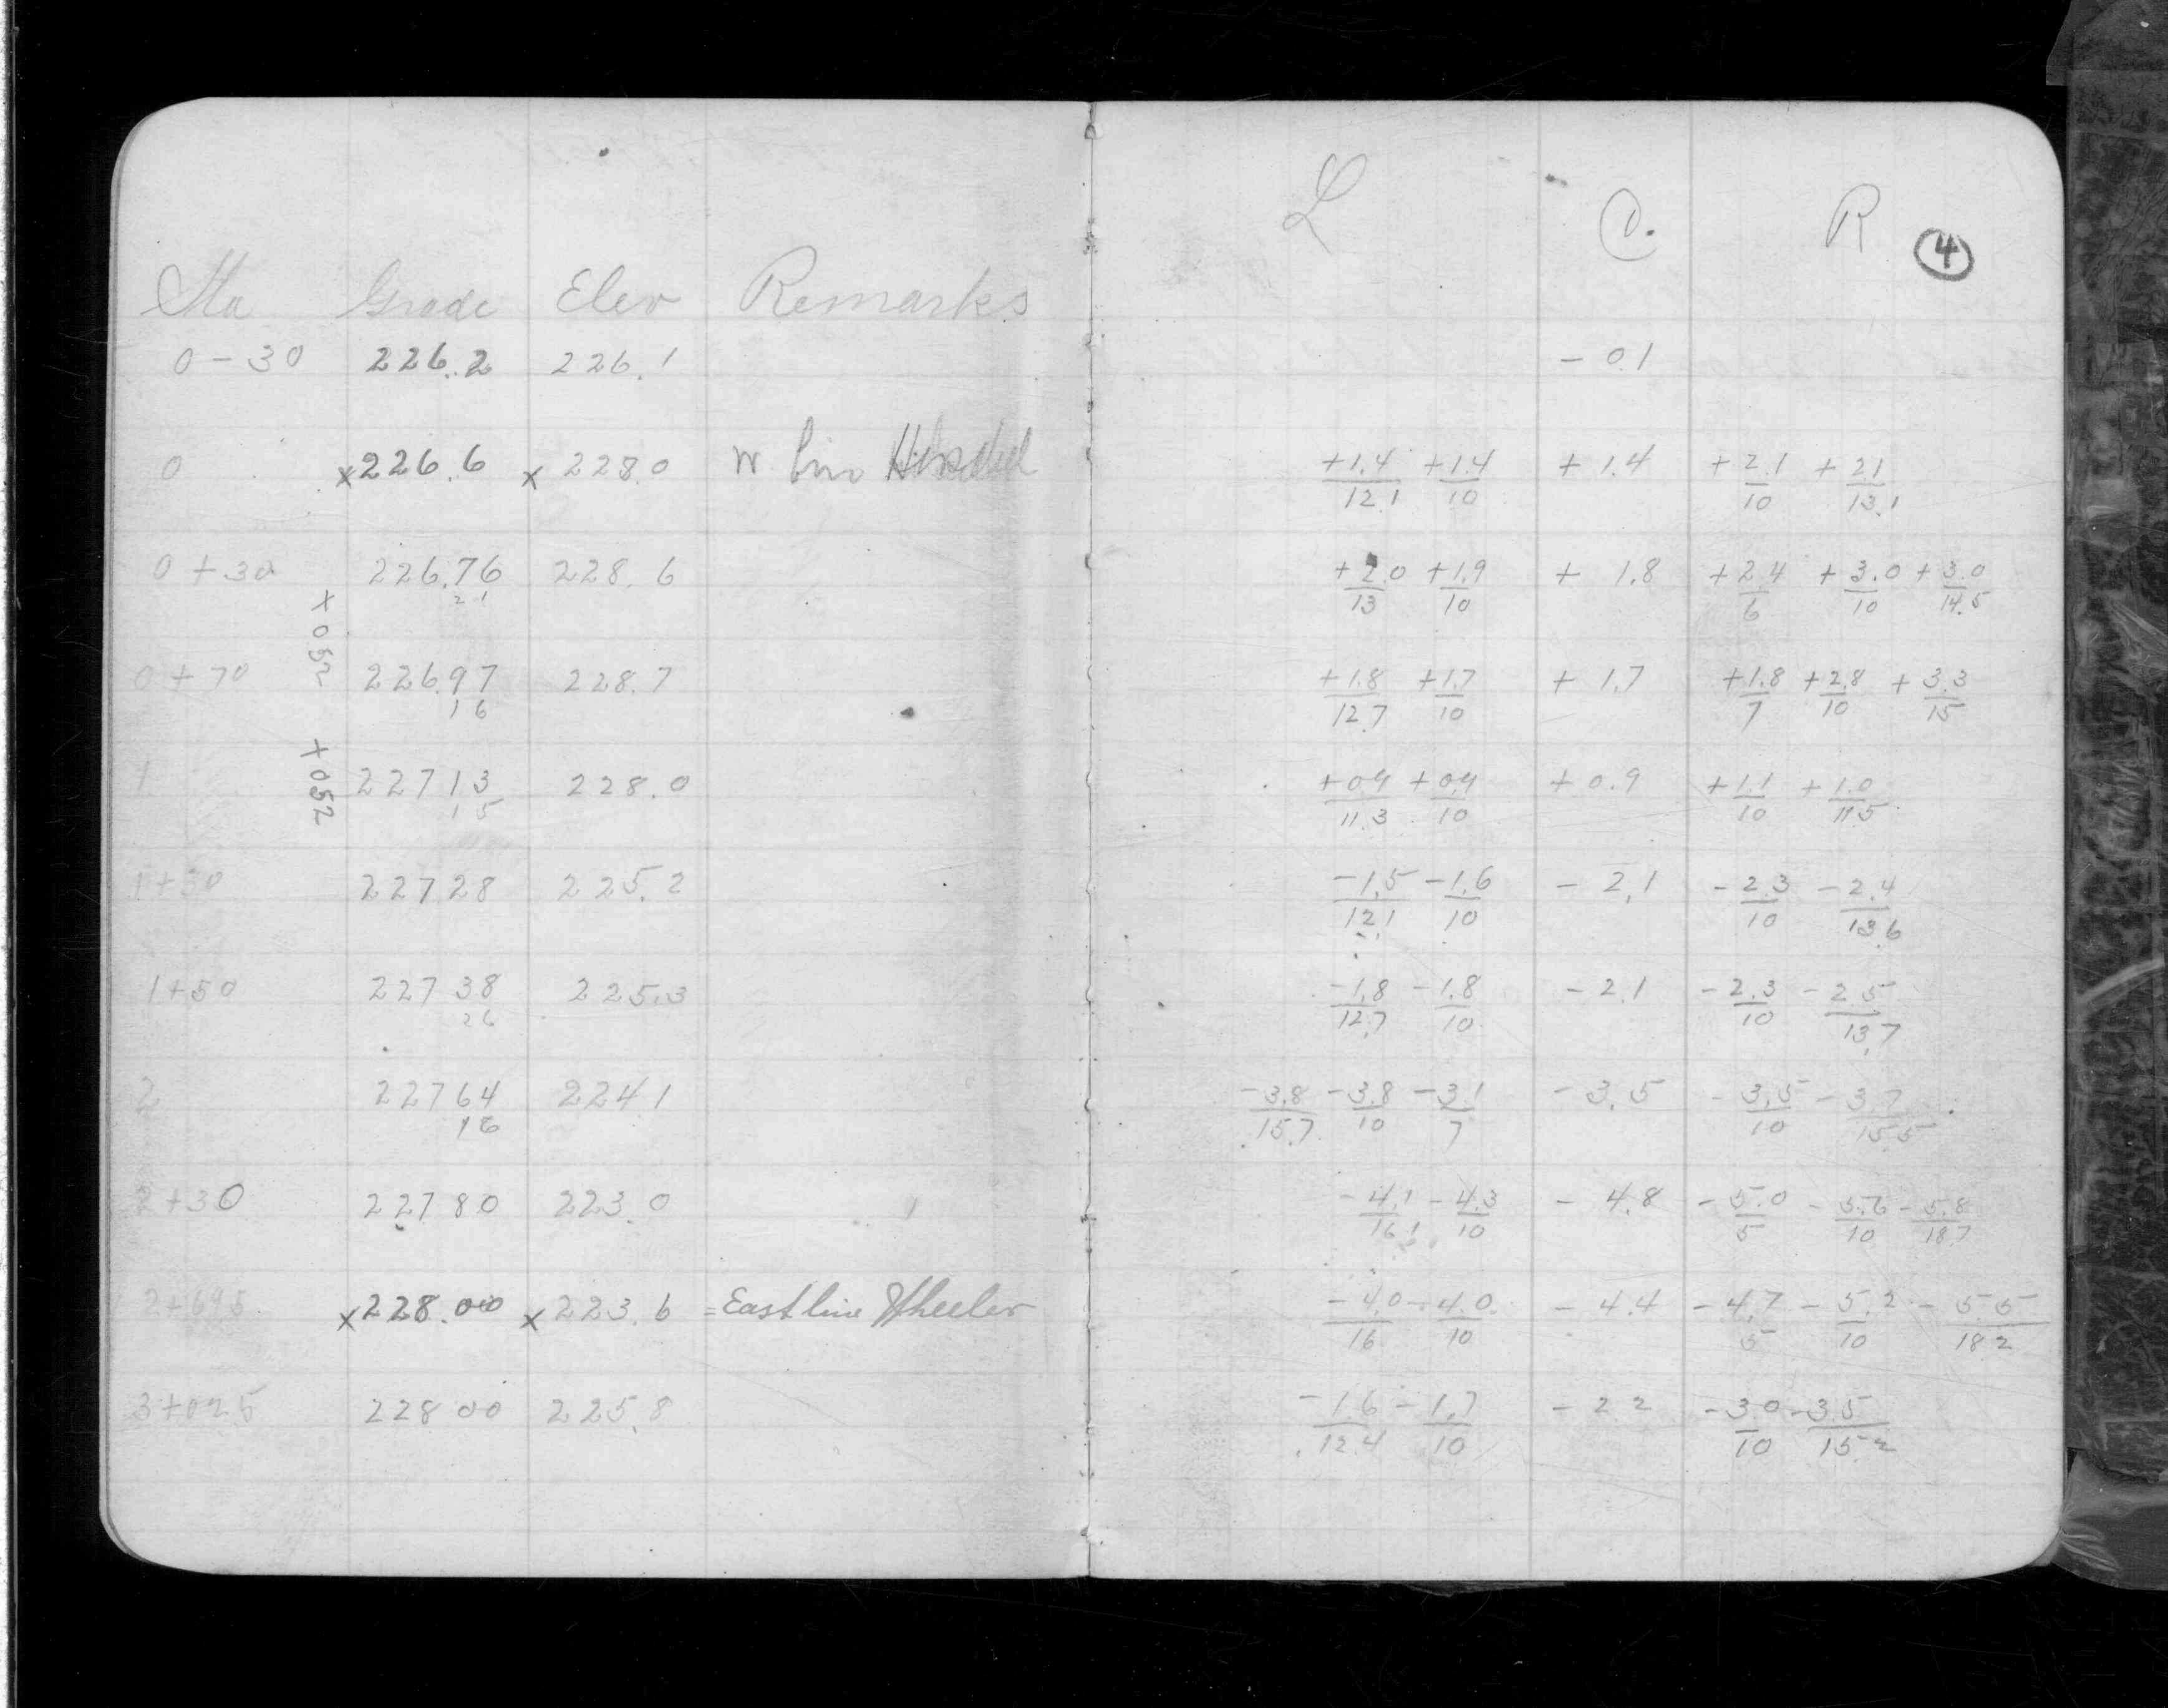 L C. R 4
Sta Grade Elev Remarks
0 - 30 226.2 226.1 - 0.1
0 x226.6 x 228.0 W line +1.4/12.1 +1.4/10 + 1.4 +2.1/10 +2.1/13.1
0 + 30 226.76 228.6 +2.0/13 +1.9/10 + 1.8 +2.4/6 +3.0/10 +3.0/14.5
21
x 052
0 + 70 226.97 228.7 +1.8/12.7 +1.7/10 + 1.7 +1.8/7 +2.8/10 +3.3/15
16
x 052
1 227 13 228.0 +0.9/11.3 +0.9/10 + 0.9 +1.1/10 +1.0/11.5
15
1+30 227 28 225.2 -1.5/12.1 -1.6/10 - 2.1 -2.3/10 -2.4/13.6
1+50 227 38 225.3 -1.8/12.7 -1.8/10 - 2.1 -2.3/10 -2.5/13.7
26
2 227 64 224.1 -3.8/15.7 -3.8/10 -3.1/7 - 3.5 -3.5/10 -3.7/15.5
16
2+30 227 80 223.0 -4.1/16.1 -4.3/10 - 4.8 -5.0/5 -5.6/10 -5.8/18.7
2+695 x228.00 x223.6 =East line Wheeler -4.0/16 -4.0/10 - 4.4 -4.7/5 -5.2/10 -5.5/18.2
3+025 228 00 225.8 -1.6/12.4 -1.7/10 - 2.2 -3.0/10 -3.5/15.2